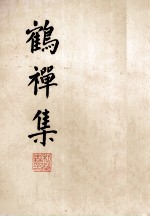 鶴禪集